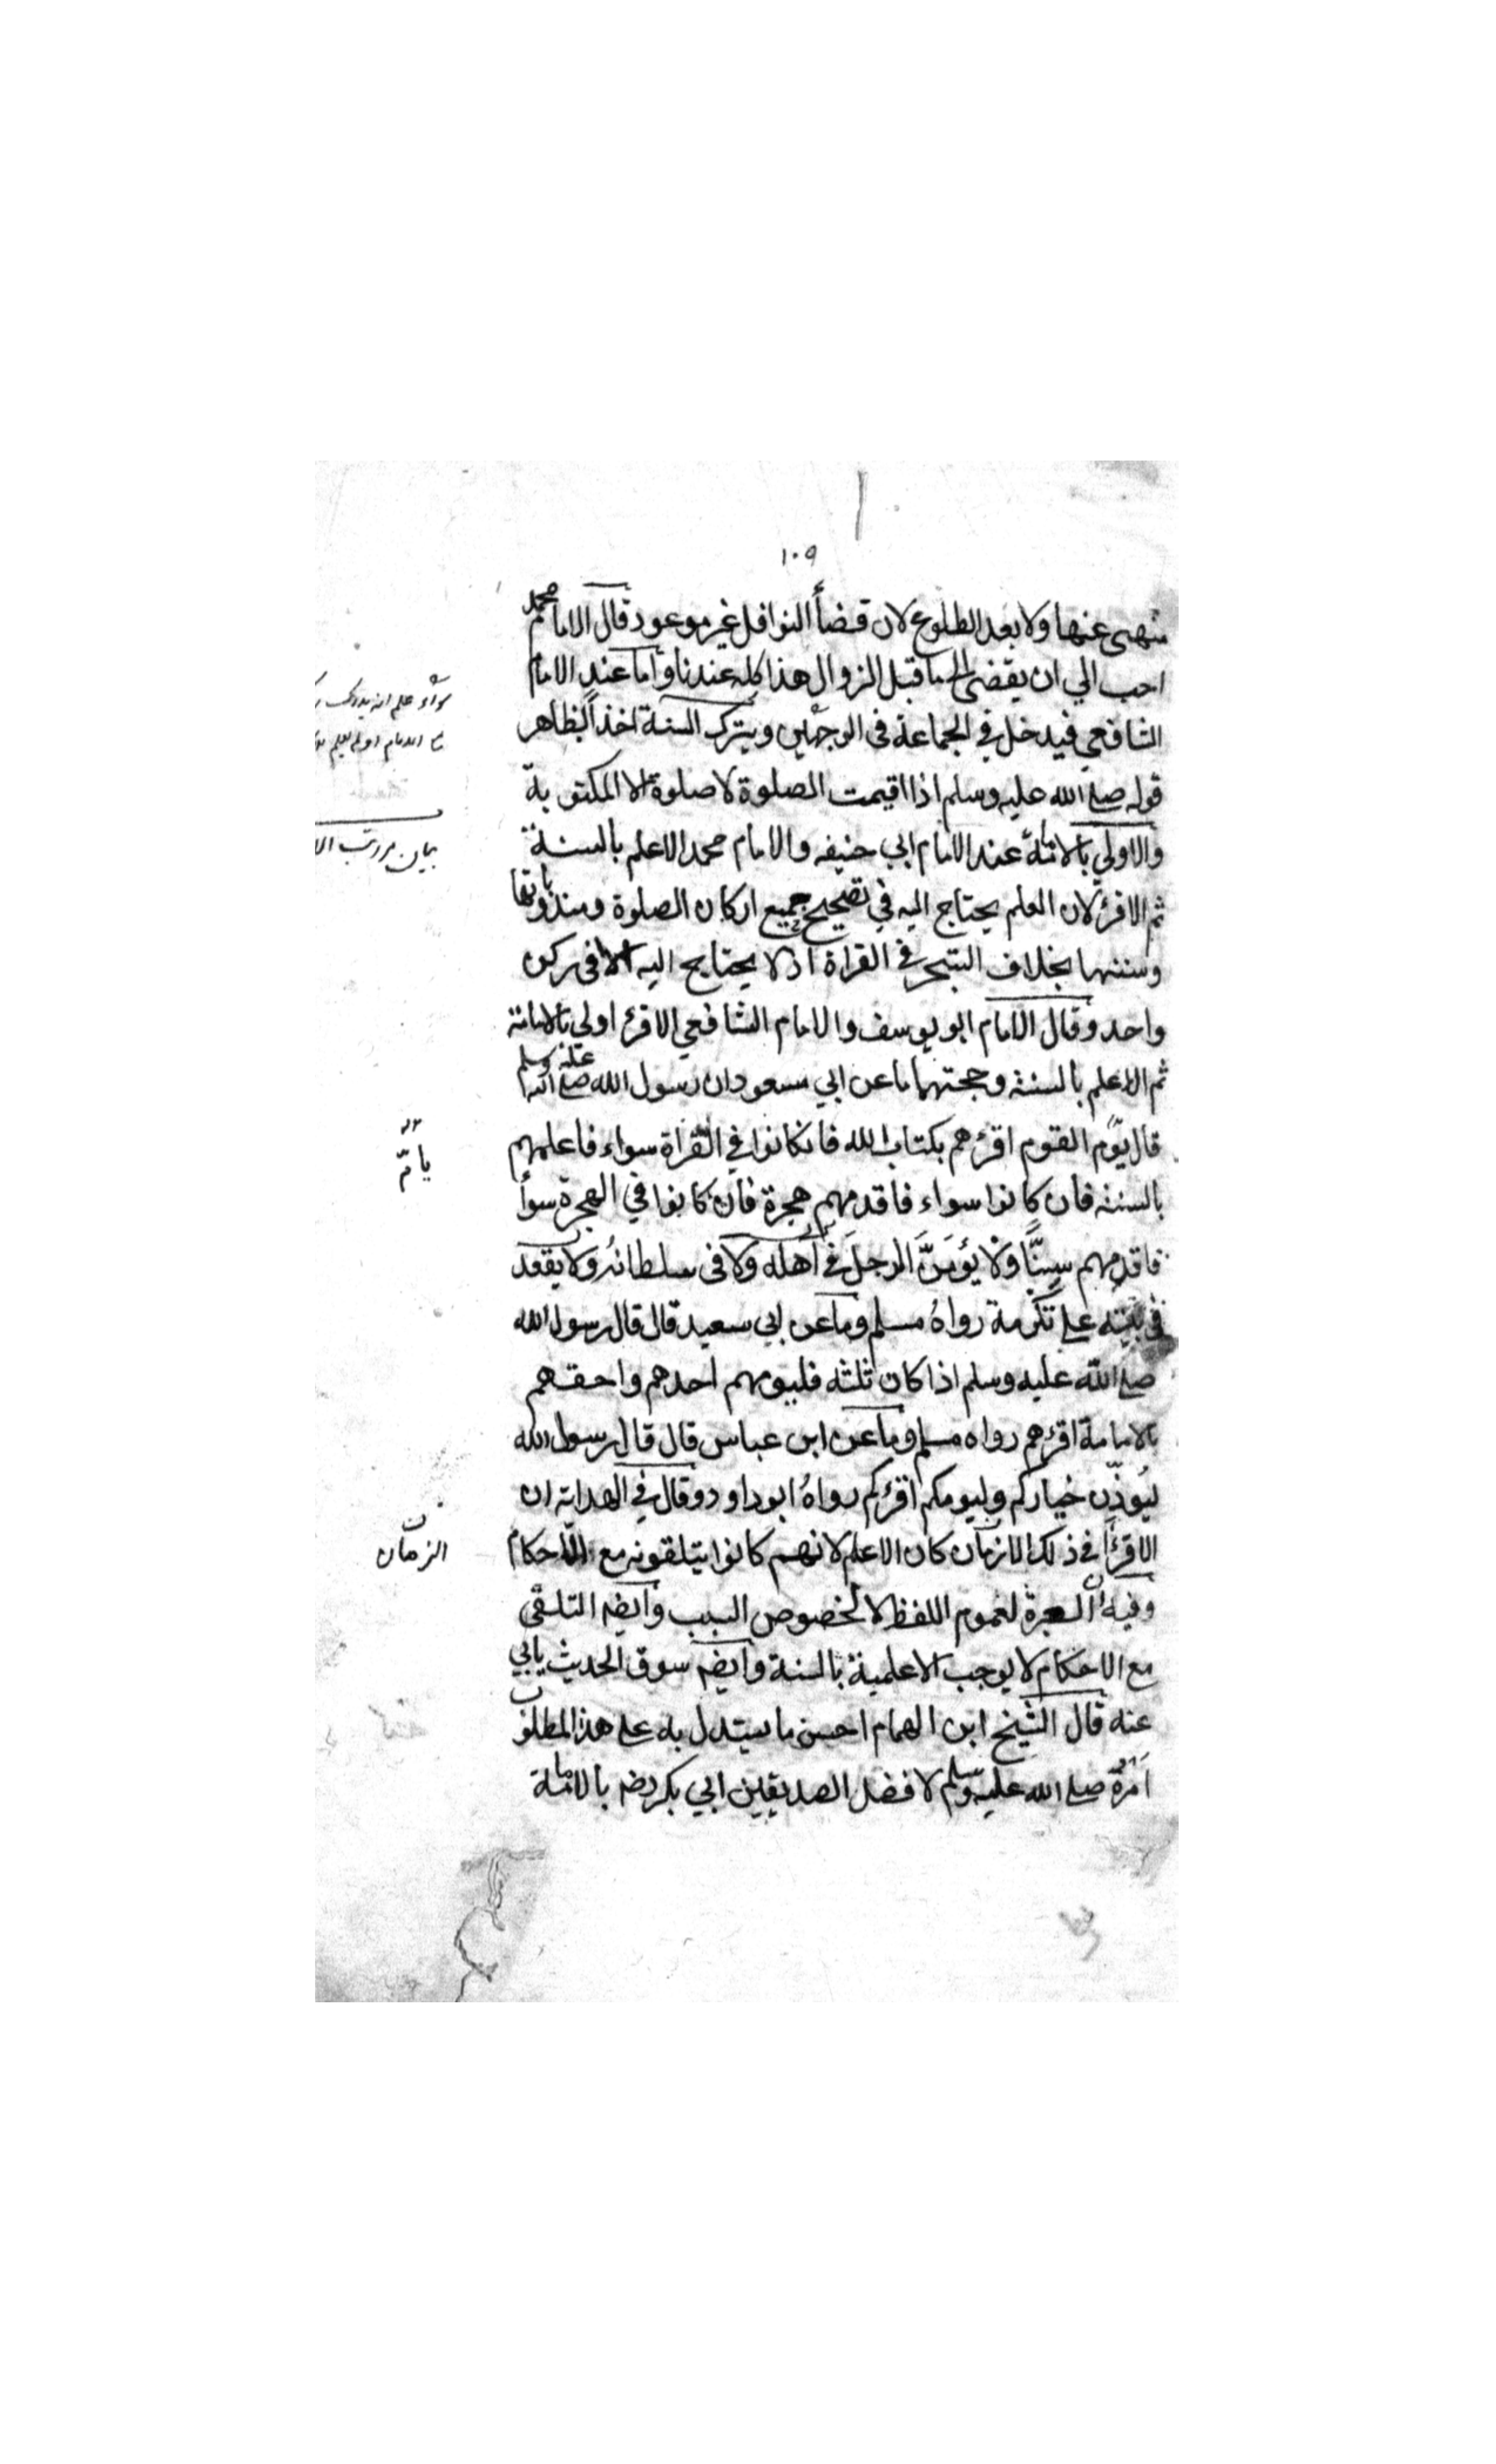 ١٠٩
منهى عنها ولا بعد الطلوع لان قضأ النوافل غير موعود قال الامام محمد
احب الي ان يقضى الى ما قبل الزوال هذا كله عندنا واما عند الامام
الشافعي فيدخل في الجماعة فى الوجهين ويترك السنة اخذاً بظاهر
قوله صلى الله عليه وسلم اذا اقيمت الصلوة لا صلوة الا المكتوبة
والاولي بالامامة عند الامام ابي حنيفه والامام محمد الاعلم بالسنة
ثم الاقرئ لان العلم يحتاج اليه في تصحيح جميع اركان الصلوة ومندوباتها
وسننها بخلاف التبحر فى القراة اذ لا يحتاج اليه الا فى ركن
واحد وقال الامام ابو يوسف والامام الشافعي الاقرئ اولي بالامامة
ثم الاعلم بالسنة وحجتهما ما عن ابي مسعود ان رسول الله صلى الله عليه وسلم
قال يؤم القوم اقرئهم بكتاب الله فان كانوا في القراة سواء فاعلمهم
يامّ
بالسنة فان كانوا سواء فاقدمهم هجرة فان كانوا في الهجرة سوأ
فاقدمهم سِنًّا ولا يؤمَنَّ الرجلَ في اهله ولا فى سلطانه ولا يقعد
في بيته على تكرمة رواهُ مسلم وما عن ابي سعيد قال قال رسول الله
صلى الله عليه وسلم اذا كان ثلثه فليومهم احدهم واحقهم
بالامامة اقرئهم رواه مسلم وما عن ابن عباس قال قال رسول الله
ليُوذّن خياركم وليومكم اقرئكم رواهُ ابو داود وقال في الهداية ان
الاقرأ في ذلك الازمان كان الاعلم لانهم كانوا يتلقونه مع الاحكام
الزمان
وفيه ان العبرة لعموم اللفظ لا لخصوص السبب وايضه التلقى
مع الاحكام لا يوجب الاعلمية بالسنة وايضه سوق الحديث يابي
عنه قال الشيخ ابن الهمام احسن ما يستدل به على هذا المطلوب
امره صلى الله عليه وسلم لافضل الصديقين ابي بكر رضه بالامامة